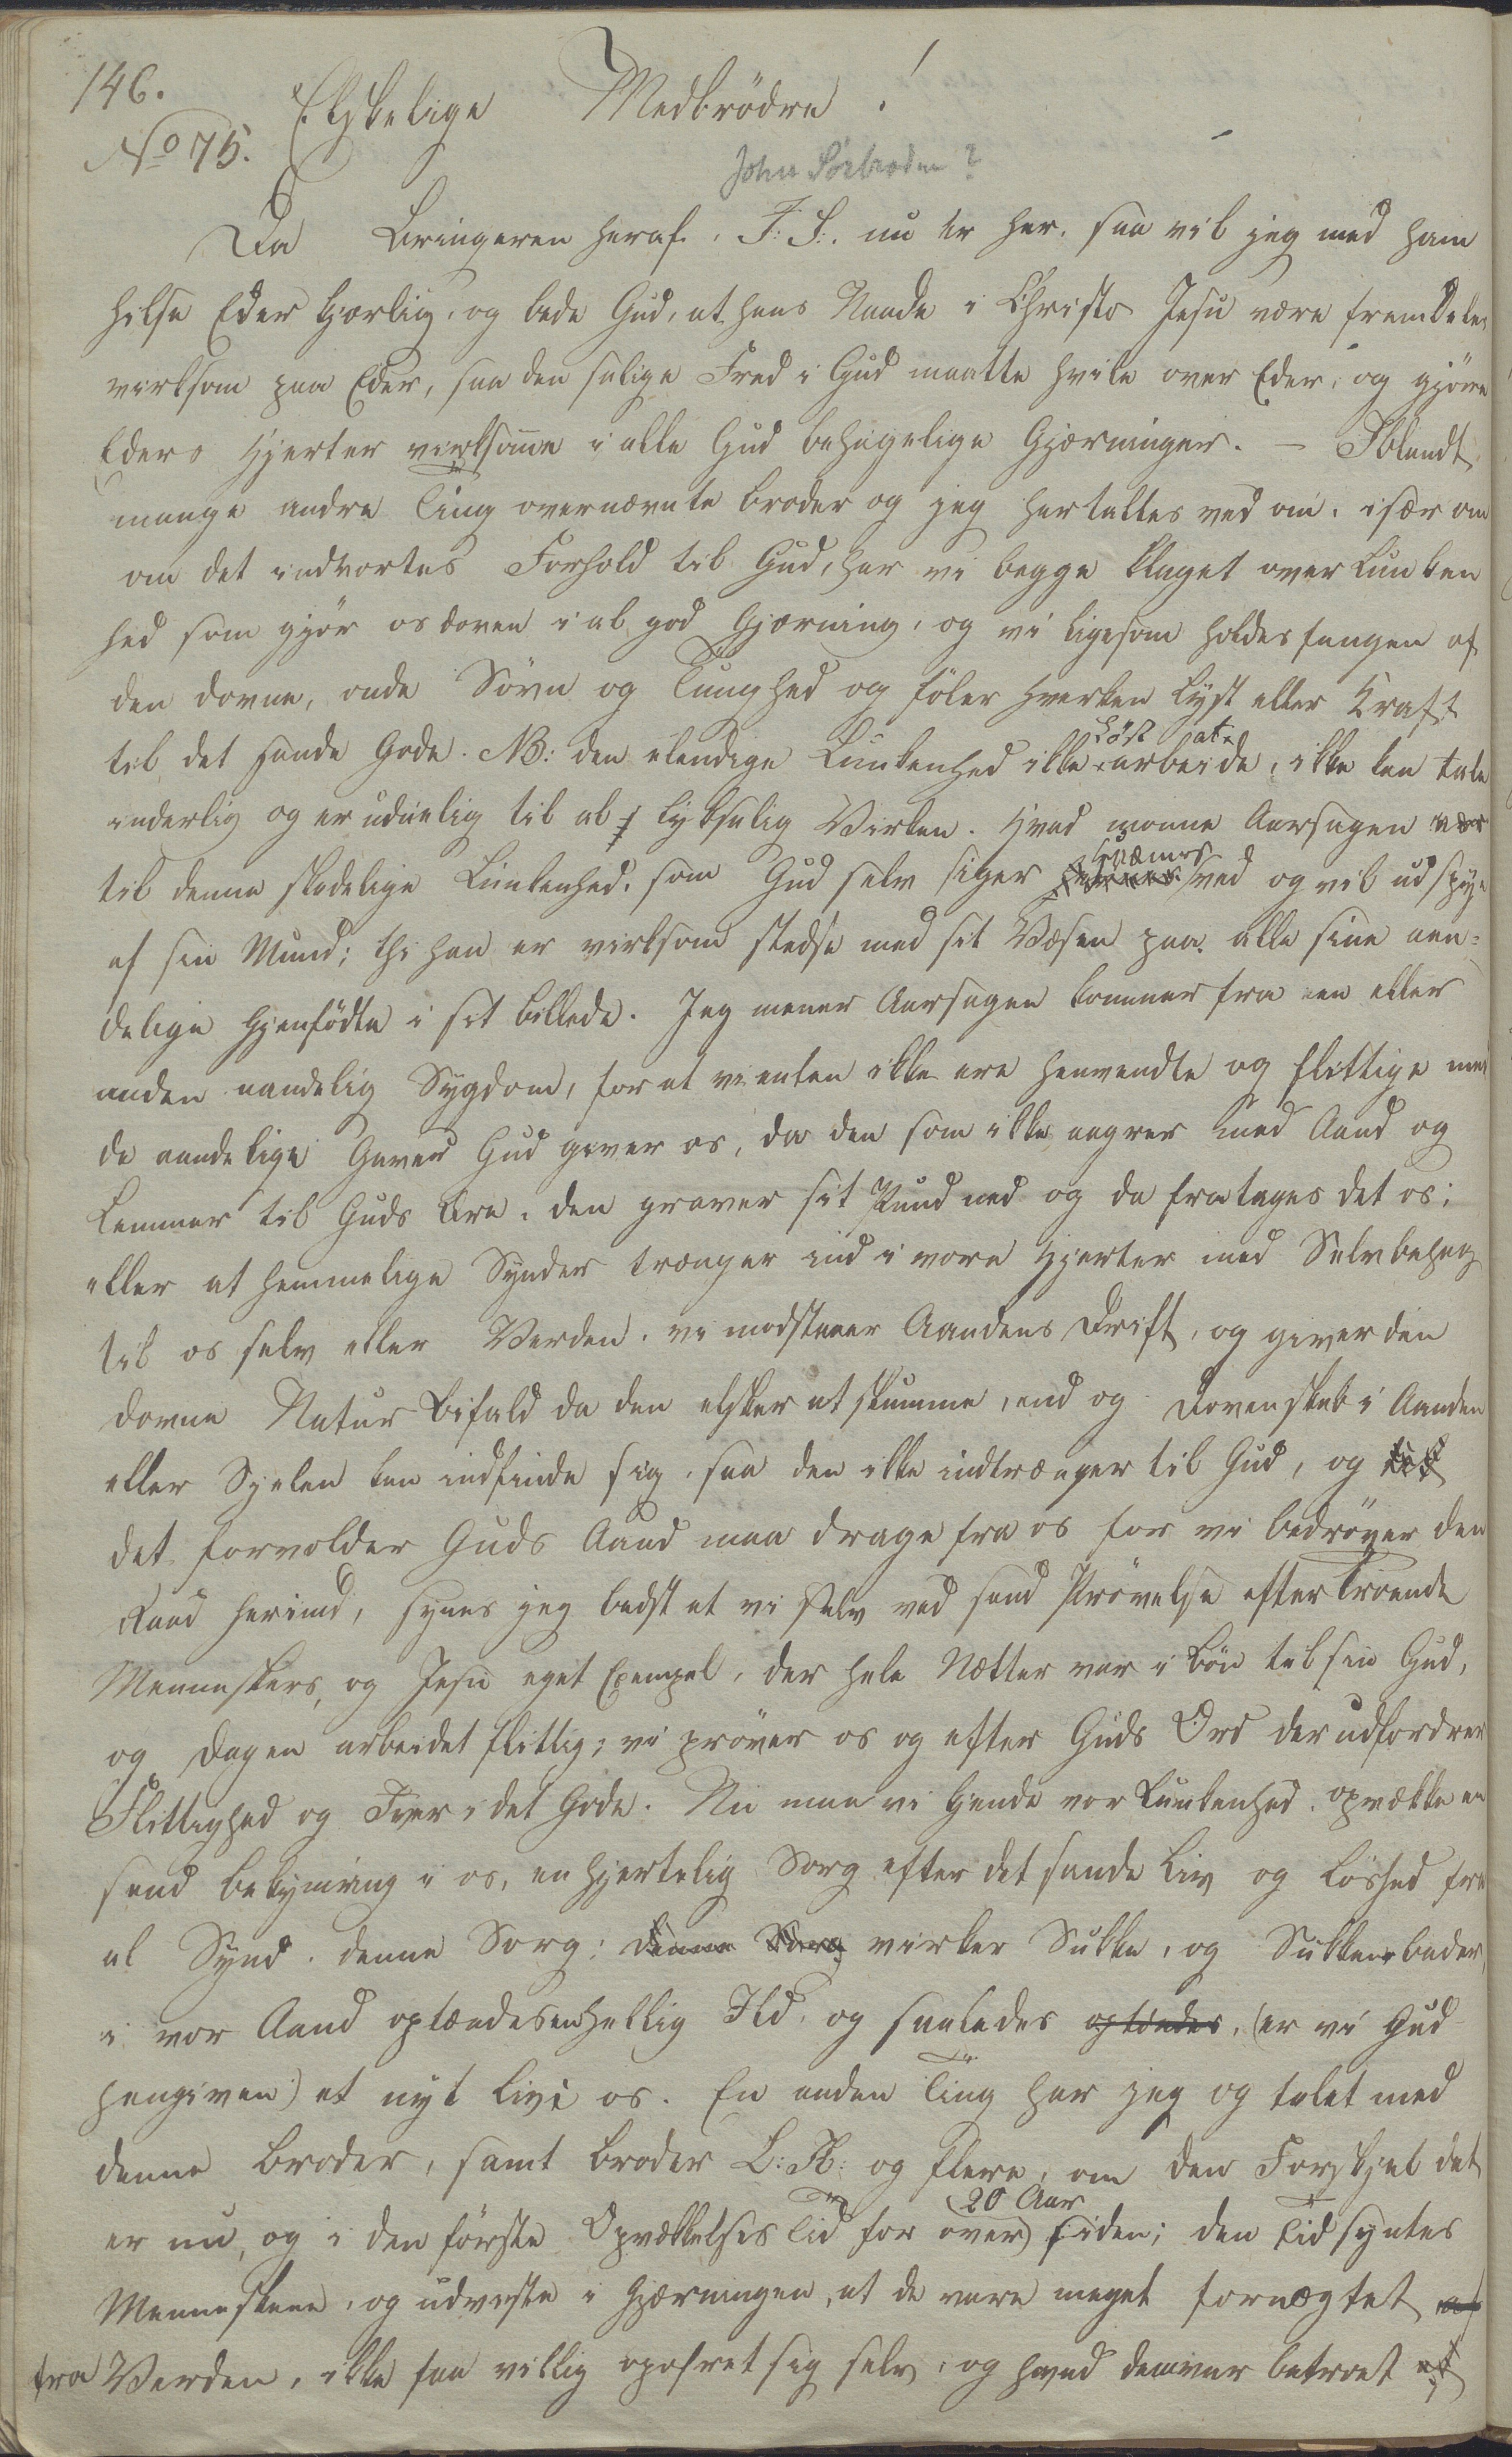 146.
No 75.
Elskelige Medbrödre!
John Sörbroden?
Da Bringeren heraf. J: S:. nu er her, saa vil jeg med ham
hilse Eder kjærlig, og bede Gud, at hans Naade i Christo Jesu være fremdeles
virksom paa Eder, saa den salige Fred i Gud maatte hvile over Eder, og gjöre
Eders Hjerter virksomme i alle Gud behagelige Gjærninger. – Iblandt
mange andre Ting overnævnte Broder og jeg her taltes ved om, især om
om det indvortes Forhold til Gud, har vi begge klaget over Lunken
hed som gjör os doven i al god Gjærning, og vi ligesom holdes fangen af
den dovne, onde Sövn og Tunghed og föler hverken Lyst eller Kraft
til det sande Gode. NB: den elendige Lunkenhed ikke Löst at arbeide, ikke kan tale
inderlig og er uduelig til al lyksalig Virken. Hvad monne Aarsagen vær
til denne skadelige Lunkenhed, som Gud selv siger væmmes ved og vil udspye
af sin Mund; thi han er virksom stedse med sit Væsen paa alle sine aan-
delige Gjenfödte i sit Billede. Jeg mener Aarsagen kommer fra een eller
anden aandelig Sygdom, for at vi enten ikke ere henvendte og flittige med
de aandelige Gaver Gud giver os, da den som ikke aagrer med Aand og
Lemmer til Guds Ære, den graver sit Pund ned og da fratages det os;
eller at hemmelige Synder trænger ind i vore Hjerter med Selvbehag
til os selv eller Verden, vi modstaaer Aandens Drift, og giver den
dovne Natur Bifald da den elsker at slumme, end og Dovenskab i Aanden
eller Sjelen kan indfinde sig, saa den ikke indtrænger til Gud, og
det forvolder Guds Aand maa drage fra os for vi bedröver den
Raad herimod, synes jeg bedst at vi selv ved sand Prövelse efter troende
Menneskers, og Jesu eget Exempel, der hele Nætter var i Bön til sin Gud,
og Dagen arbeidet flittig; vi pröver os og efter Guds Ord der udfordrer
Flittighed og Iver i det Gode. Nu maa vi kjende vor Lunkenhed, opvække en
sand Bekymring i os, en hjertelig Sorg efter det sande Liv og Löshed fra
al Synd, denne Sorg: denne Sorg virker Sukke, og Sukkene beder,
i vor Aand optændes en hellig Ild, og saaledes optændes, (er vi Gud
hengiven) et nyt Liv i os. En anden Ting har jeg og talet med
denne Broder, samt Broder L: H: og flere, om den Forskjel det
er nu, og i den förste Opvækkelses Tid for over 20 Aar siden; den Tid syntes
Menneskene, og udviste i Gjærningen, at de vare meget fornægtet af
fra Verden, ikke saa villig opofret sig selv, og hvad dem var betroet at